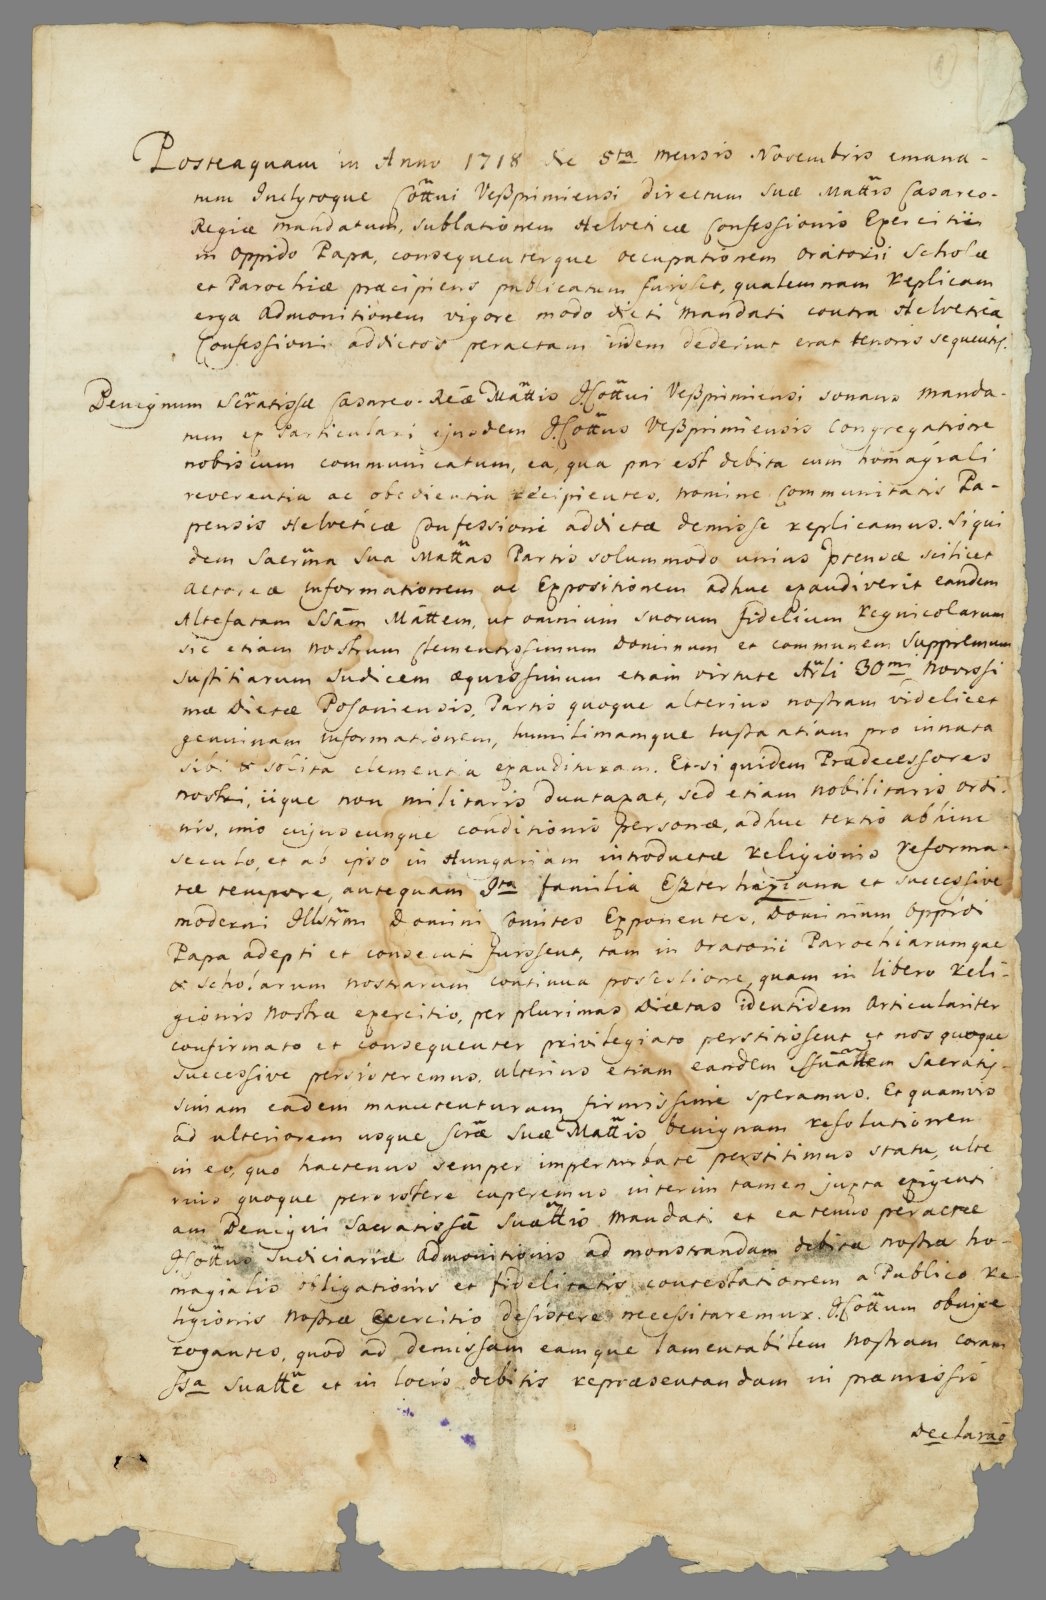 Posteaquam in Anno 1718 de 5ta mensis Novembris emana-
tum Inclytoque Cottui Veszprimiensi directum suae Mattis Caesareo-
Regiae mandatum, sublationem Helveticae Confessionis Exercitii
in oppido Papa, consequenterque occupationem oratorii Scholae
et Parochiae praecipiens publicatum fuisset, qualemnam Replicam
erga admonitionem vigore modo dicti mandati contra Helvetica
Confessioni addictos peractam iidem dederint erat tenoris sequentis.
Benignum Scratissae Caesareo-Reae Mattis I Cottui Veszprimiensi sonans manda-
tum ex Particulari ejusdem I. Cottus Veszprimiensis Congregatione
nobiscum communicatum, ea, qua par est debita cum homagiali
reverentia ac obedientia recipientes, nomine Communitatis Pa-
pensis Helveticae Confessioni addictae demisse replicamus. Siqui
dem Sacrma Sua Mattas Partis solummodo unius ptensae scilicet
actoreae informationem ac Expositionem adhuc exaudiverit eandem
Altefatam SSam Mattem, ut omnium suorum fidelium regnicolarum
sic etiam nostrum Clementissimum Dominum et communem Suppremum
Justitiarum Judicem aequissimum etiam virtute Arli 30mi novissi
mae Dietae Posoniensis, Partis quoque alterius nostram videlicet
genuinam informationem, humilimamque Instantiam pro innata
sibi & solita clementia exaudituram. Et siquidem Praedecessores
nostri, iique non militaris duntaxat, sed etiam nobilitaris ordi-
nis, imo cujuscunque conditionis personae, adhuc tertio abhinc
seculo, et ab ipso in Hungariam introductae Religionis reforma-
tae tempore, antequam Ita familia Eszterhaziana et successive
moderni Illstrmi Domini Comites Exponentes, Dominium oppidi
Papa adepti et consecuti fuissent, tam in oratorii Parochiarumque
& scholarum nostrarum continua possessione, quam in libero Reli-
gionis nostrae exercitio, per plurimas Diaetas identidem articulariter
confirmato et consequenter privilegiato perstitissent et nos quoque
successive persisteremus, ulterius etiam eandem Suattem Sacratis-
simam eadem manutenturam firmissime speramus. Et quamvis
ad ulteriorem usque Scrae Suae Mattis benignam resolutionem
in eo, quo hactenus semper imperturbate perstitimus statu, ulte
rius quoque persistere cuperemus interim tamen juxta exigenti
am Benigni Sacratissae Suattis mandati et eatenus peractae
I Cottus Judiciariae admonitionis ad monstrandam debitae nostrae ho-
magialis obligationis et fidelitatis contestationem a Publico Re-
ligionis nostrae Exercitio desistere necessitaremur. I Cottum obnixe
rogantes, quod ad demissam eamque lamentabilem nostram coram
SSa Suatte et in locis debitis repraesentandam in praemissis
declarao